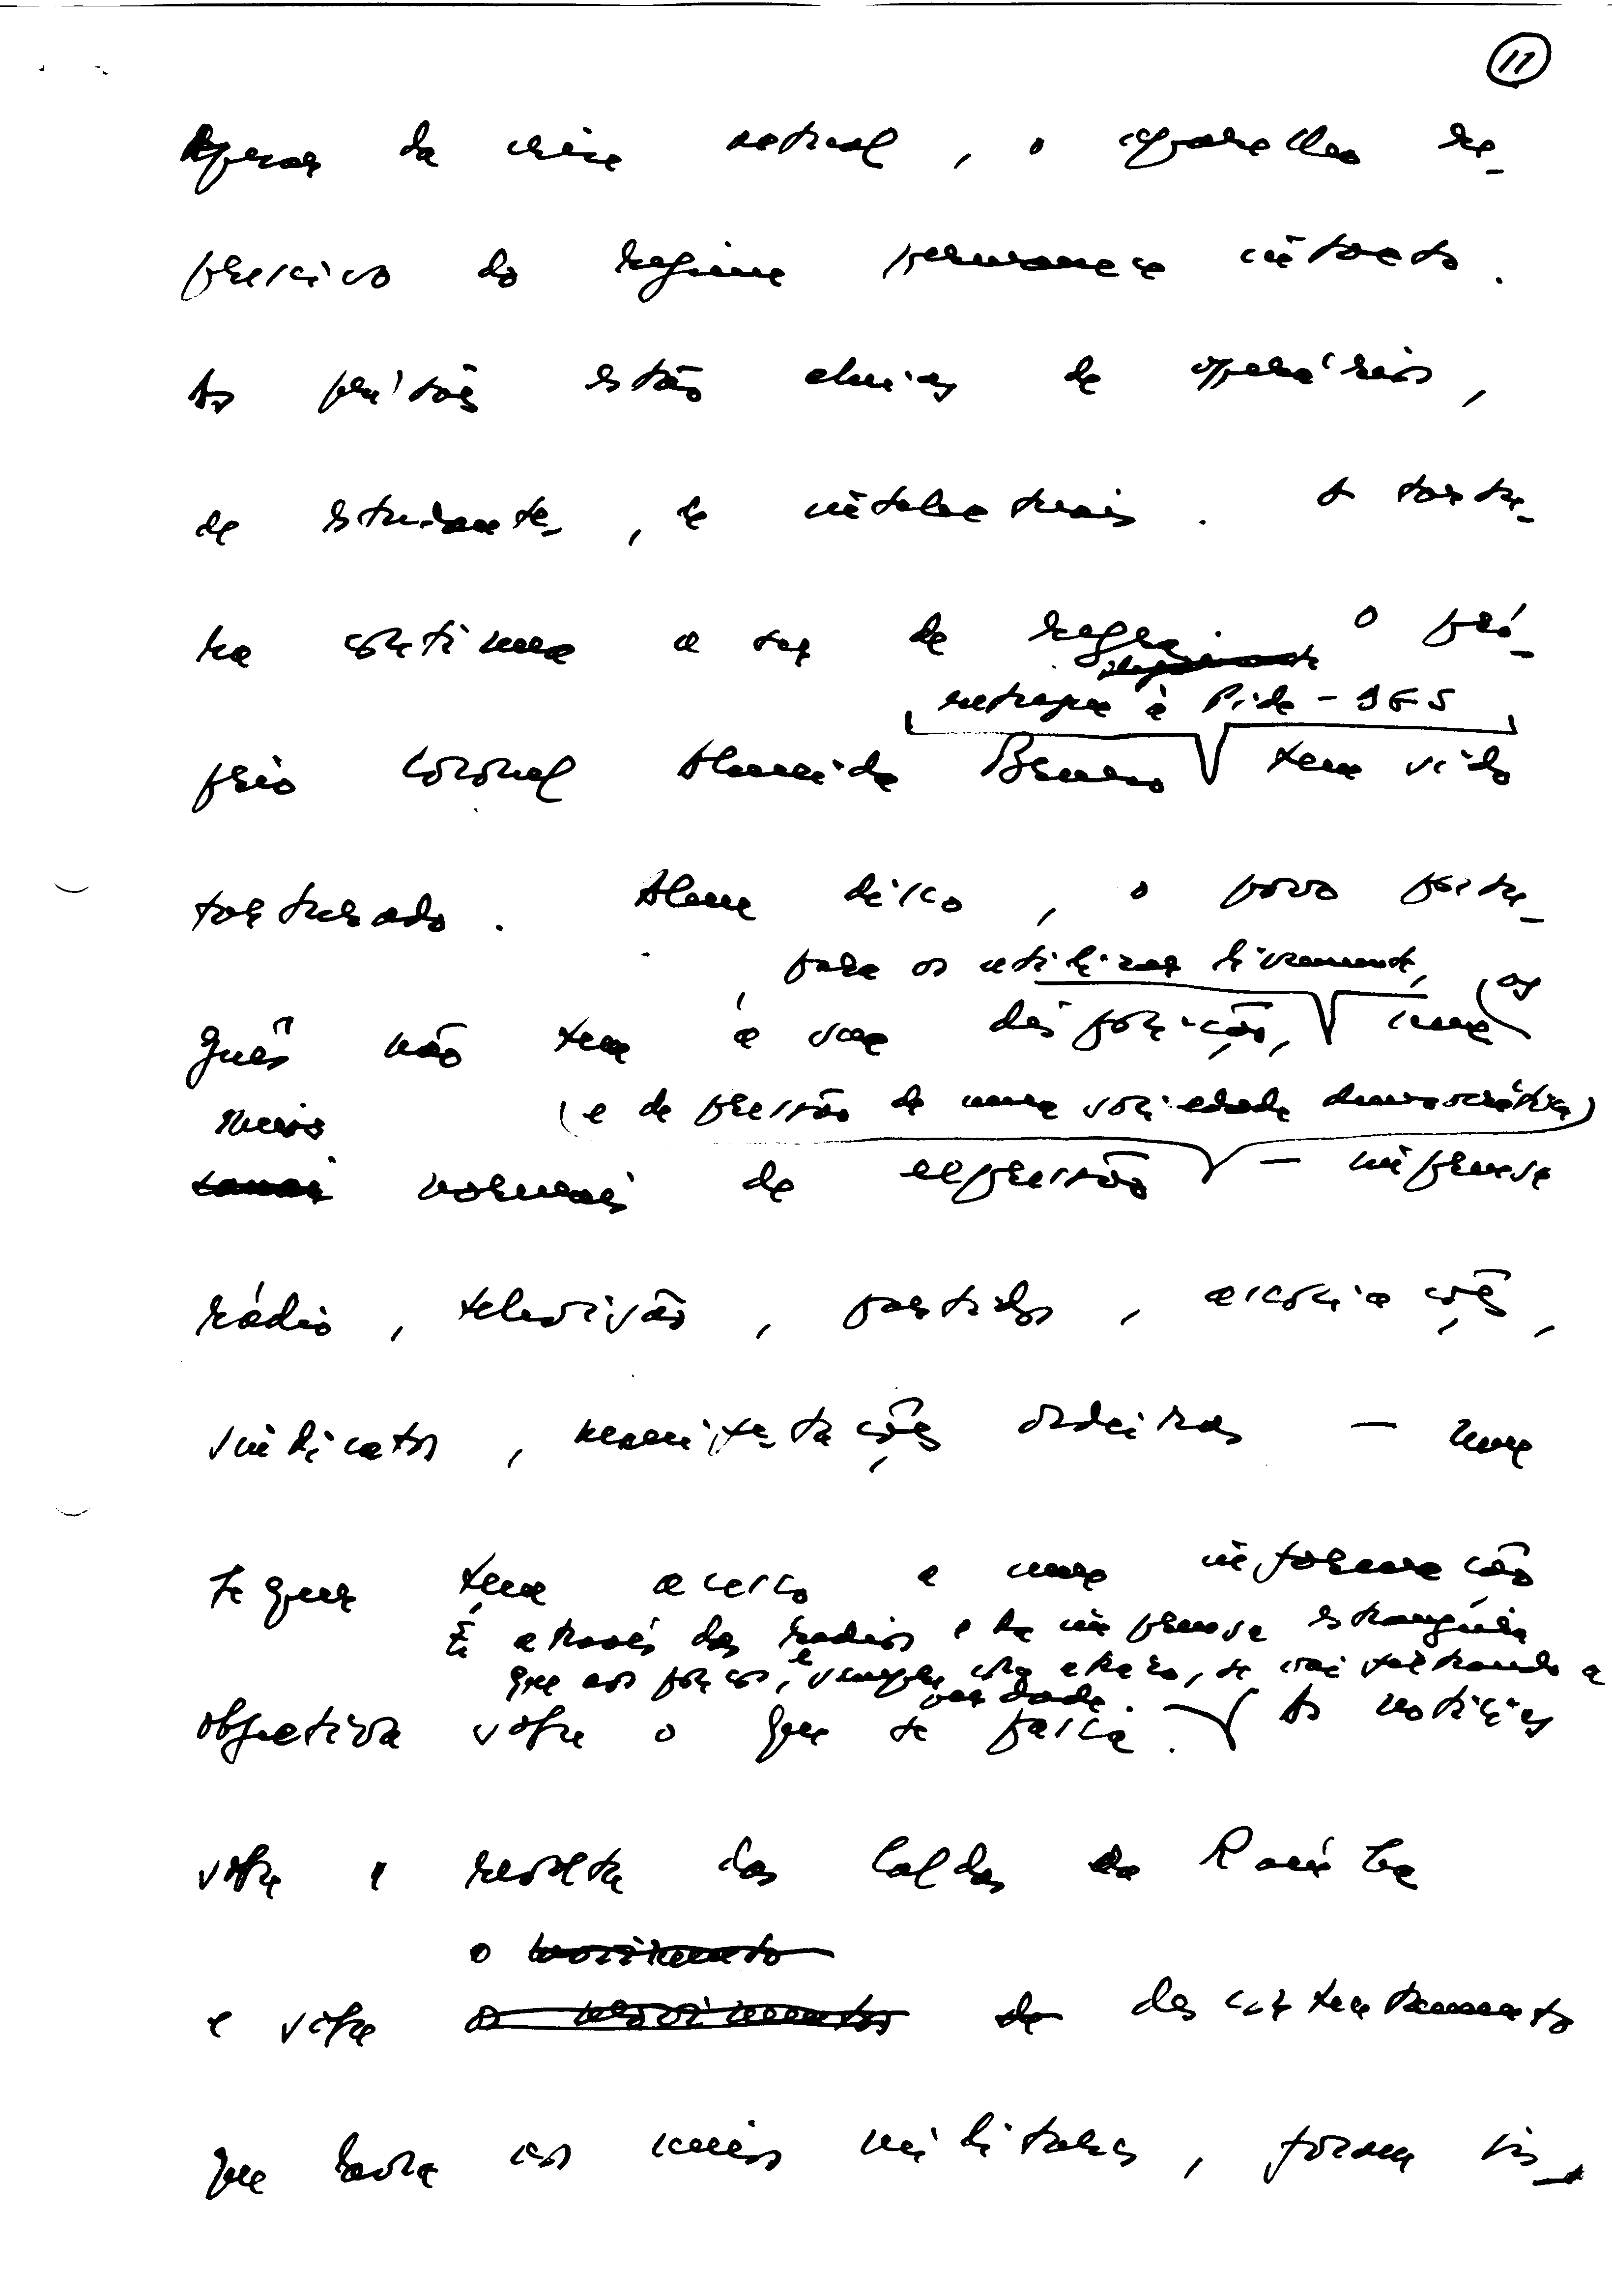 11
Apesar da crise actual, o aparelho re-
pressivo do regime permanece intacto.
As prisões estão cheias de operários,
de estudantes, de intelectuais. A tortu-
ra continua a ser de regra. O pró-
entregue à Pide-DGS
prio Coronel Almeida Bruno tem sido
torturado. Além disso, o povo portu-
, para os utilizar livremente,
guês não tem à sua disposição, os
meios (e de pressão de uma sociedade democrática)
normais de expressão — imprensa
rádio, televisão, partidos, associações,
sindicatos, manifestações ordeiras — nem
sequer tem acesso a uma informação
É através das rádios e da imprensa estrangeira
que aos poucos, e sempre com atraso, se vai sabendo a
verdade.
objectiva sobre o que se passa. As notícias
sobre a revolta das Caldas da Rainha
o
e sobre descontentamento
que lavra nos meios militares, foram vis-